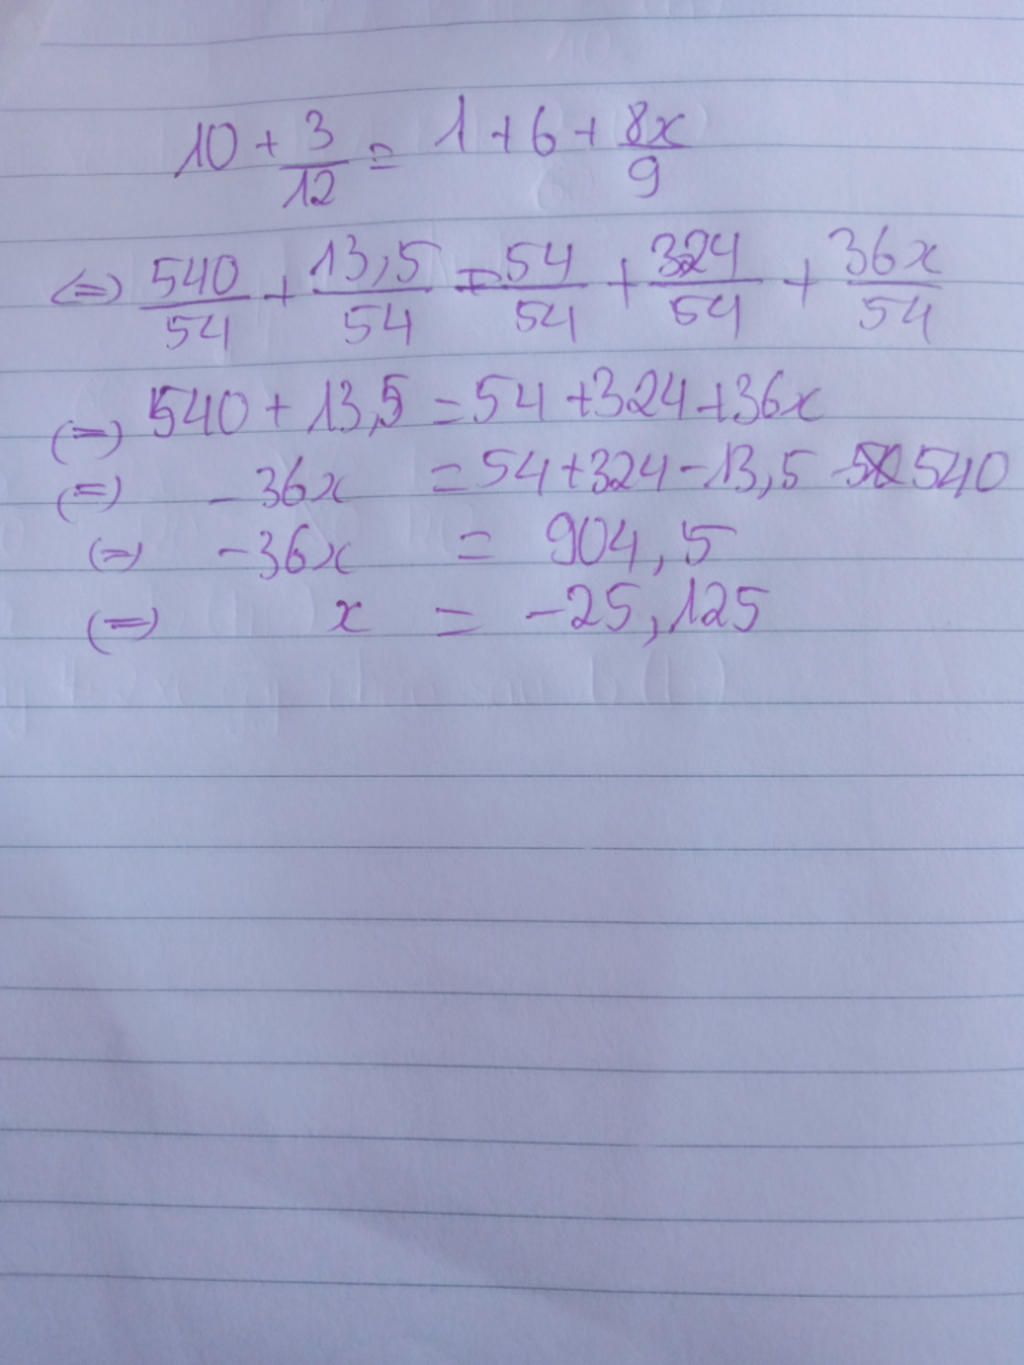 10 + 3/12 = 1 + 6 + 8x/9
<=> 540/54 + 13,5/54 = 54/54 + 324/54 + 36x/54
(=) 540 + 13,5 = 54 + 324 + 36x
(=) - 36x = 54 + 324 - 13,5 - 540
(=) - 36x = 904,5
(=) x = -25,125